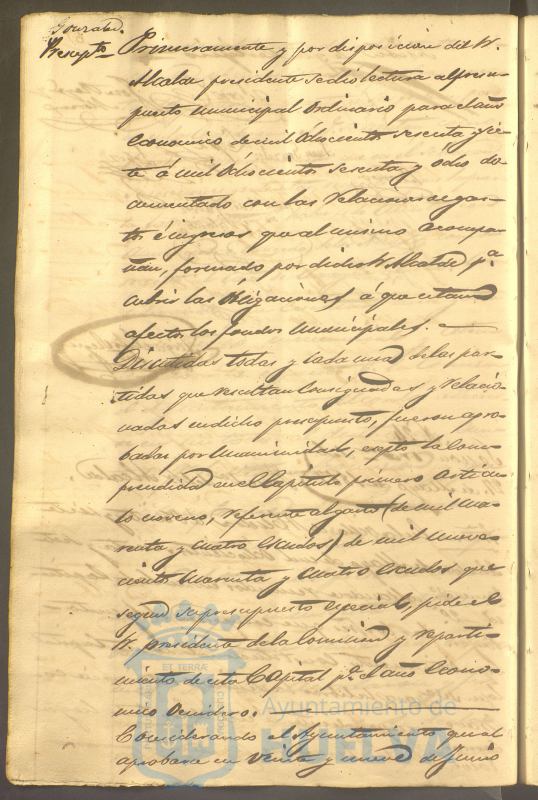 Gonzalez.
Presupto
Primeramente y por disposicion del Sr.
Alcalde presidente se dio lectura al presu-
puesto municipal Ordinario para el año
economico de mil Ochocientos sesenta y sie-
te á mil Ochocientos sesenta y ocho do-
cumentado con las relaciones de gas-
tos é ingresos que al mismo acompa-
ñan, formado por dicho Sr. Alcalde pa
cubrir las Obligaciones á que estan
afectos los fondos municipales.
Discutidas todas y cada una de las par-
tidas que resultan Consignadas y relacio-
nadas en dicho presupuesto, fueron apro-
badas por Unanimidad, excepto la Com-
prendida en el Capitulo primero Articu-
lo noveno, referente al gasto (de mil cua-
renta y cuatro escudos) de mil nueve-
ciento cuarenta y cuatro escudos que
segun su presupuesto especial, pide el
Sr. presidente de la Comision y reparti-
miento de esta Capital pa el año Econo-
mico Venidero.
Considerando el Ayuntamiento que al
aprobarse en Veinte y nueve de Junio
Ayuntamiento de
HUELVA
ET TERRÆ